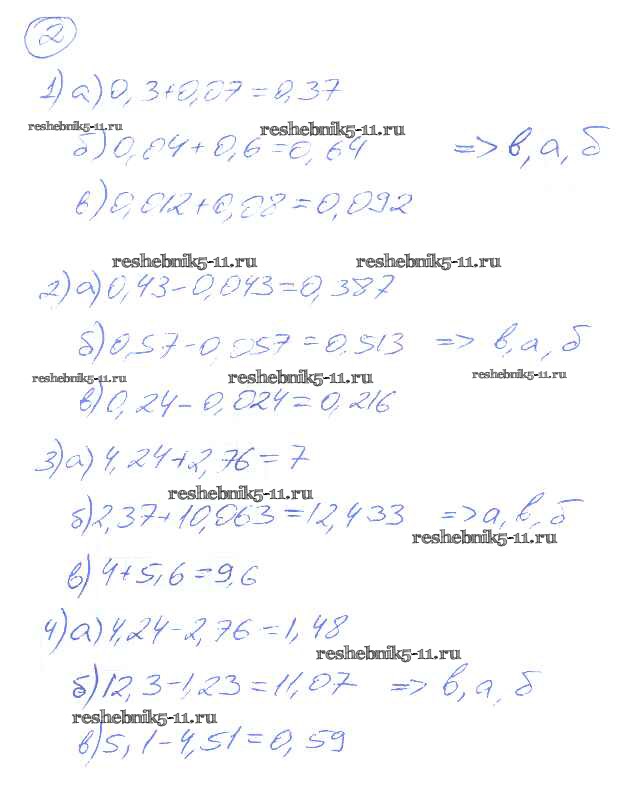 2
1) а) 0,3+0,07=0,37
reshebnik5-11.ru reshebnik5-11.ru
б) 0,04+0,6=0,64 => в, а, б
в) 0,012+0,08=0,092
reshebnik5-11.ru reshebnik5-11.ru
2) а) 0,43-0,043=0,387
б) 0,57-0,057=0,513 => в, а, б
reshebnik5-11.ru reshebnik5-11.ru reshebnik5-11.ru
в) 0,24-0,024=0,216
3) а) 4,24+2,76=7
reshebnik5-11.ru
б) 2,37+10,063=12,433 => а, в, б
reshebnik5-11.ru
в) 4+5,6=9,6
4) а) 4,24-2,76=1,48
reshebnik5-11.ru
б) 12,3-1,23=11,07 => в, а, б
reshebnik5-11.ru
в) 5,1-4,51=0,59